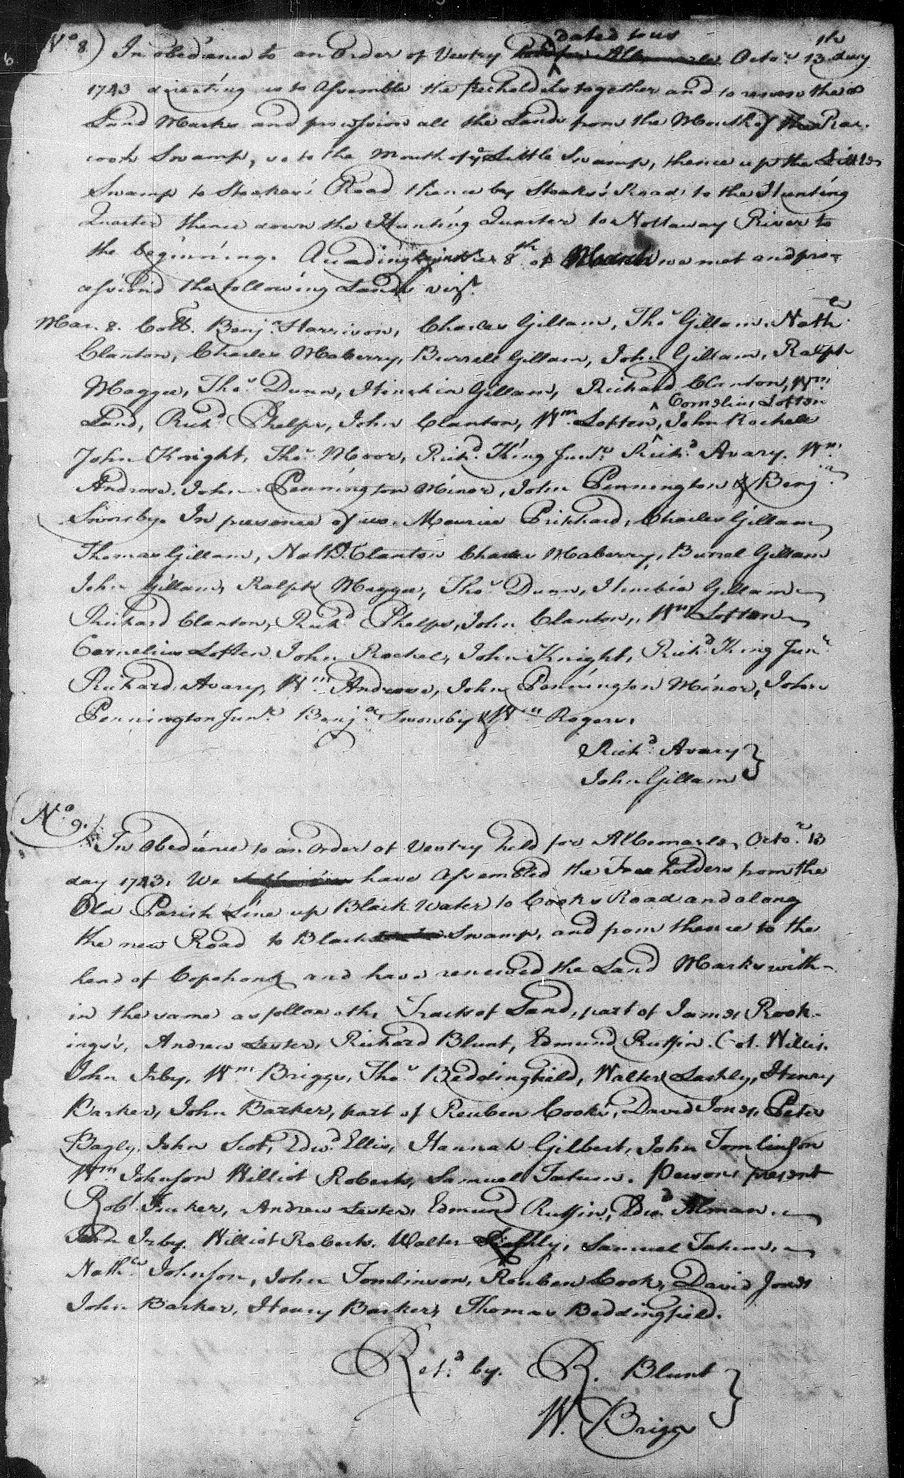 No 8) In obedience to an Order of Vestry held for Albemarle dated to us Octor 13th day
1743 directing us to Assemble the freeholders together and to renew the
Land Marks and procession all the Lands from the Mouth of the Rac-
coon Swamp, up to the Mouth of ye Little Swamp, thence up the Little
Swamp to Stoakes's Road thence by Stoaks's Road to the Hunting
Quarter thence down the Hunting Quarter to Nottaway River to
the begining. Acciding 8th of March we met and pro=
cessiond the following Lands vizt.
Mar. 8. Collo. Benja Harrison, Charles Gillam, Thos Gillam. Nathl
Clanton, Charles Maberry, Burrell Gillam, John Gillam, Ralph
Maggee, Thos Dunn, Hinchia Gillam, Richard Clanton, Wm
Land, Richd Phelps, John Clanton, Wm Lofton, Cornelius Lofton John Rochell
John Knight, Thos Moor, Richd King Junr Richd Avary. Wm
Androos. John Pennington Minor, John Pennington & Benja
Sowsby. In presence of us. Maurice Prichard, Charles Gillam
Thomas Gillam, Nathl. Clanton Charles Maberry, Burrel Gillam
John Gillam, Ralph Maggee, Thos Dunn, Hinchia Gillam
Richard Clanton, Richd Phelps, John Clanton, Wm Lofton
Cornelius Loften, John Rochel, John Knight, Richd King Junr
Richard Avary, Wm Androos, John Pennington Minor, John
Pennington Junr. Benja Sowsby & Wm Rogers.
Richd Avary
John Gillam
No 9.
In Obedience to an Order of Vestry held for Albemarle, Octor 13
day 1743. We have Assembled the Freeholders from the
Old Parish Line up Black Water to Cooks Road and along
the new Road to Black Swamp, and from thence to the
head of Copohonk and have renewed the Land Marks with-
in the same as follow othe Tracts of Land, part of James Rook-
ings's, Andrew Lester, Richard Blunt, Edmund Ruffin. Col. Willis.
John Irby, Wm Briggs, Thos Beddingfield, Walter Lashly, Henry
Barker, John Barker, part of Reuben Cooks, David Jones, Peter
Bagly, John Scot, Edwd Ellis, Hannah Gilbert, John Tomlinson
Wm Johnson Williot Roberts, Samuel Tatum. Persons present
Robt Tucker, Andrew Lester, Edmund Ruffin, Edwd Alman.
John Irby. Williot Roberts. Walter Lashly, Samuel Tatum,
Nathl Johnson, John Tomlinson, Reuben Cook, David Jones
John Barker, Henry Barker, Thomas Beddingfield.
Retd by. R. Blunt
W. Briggs